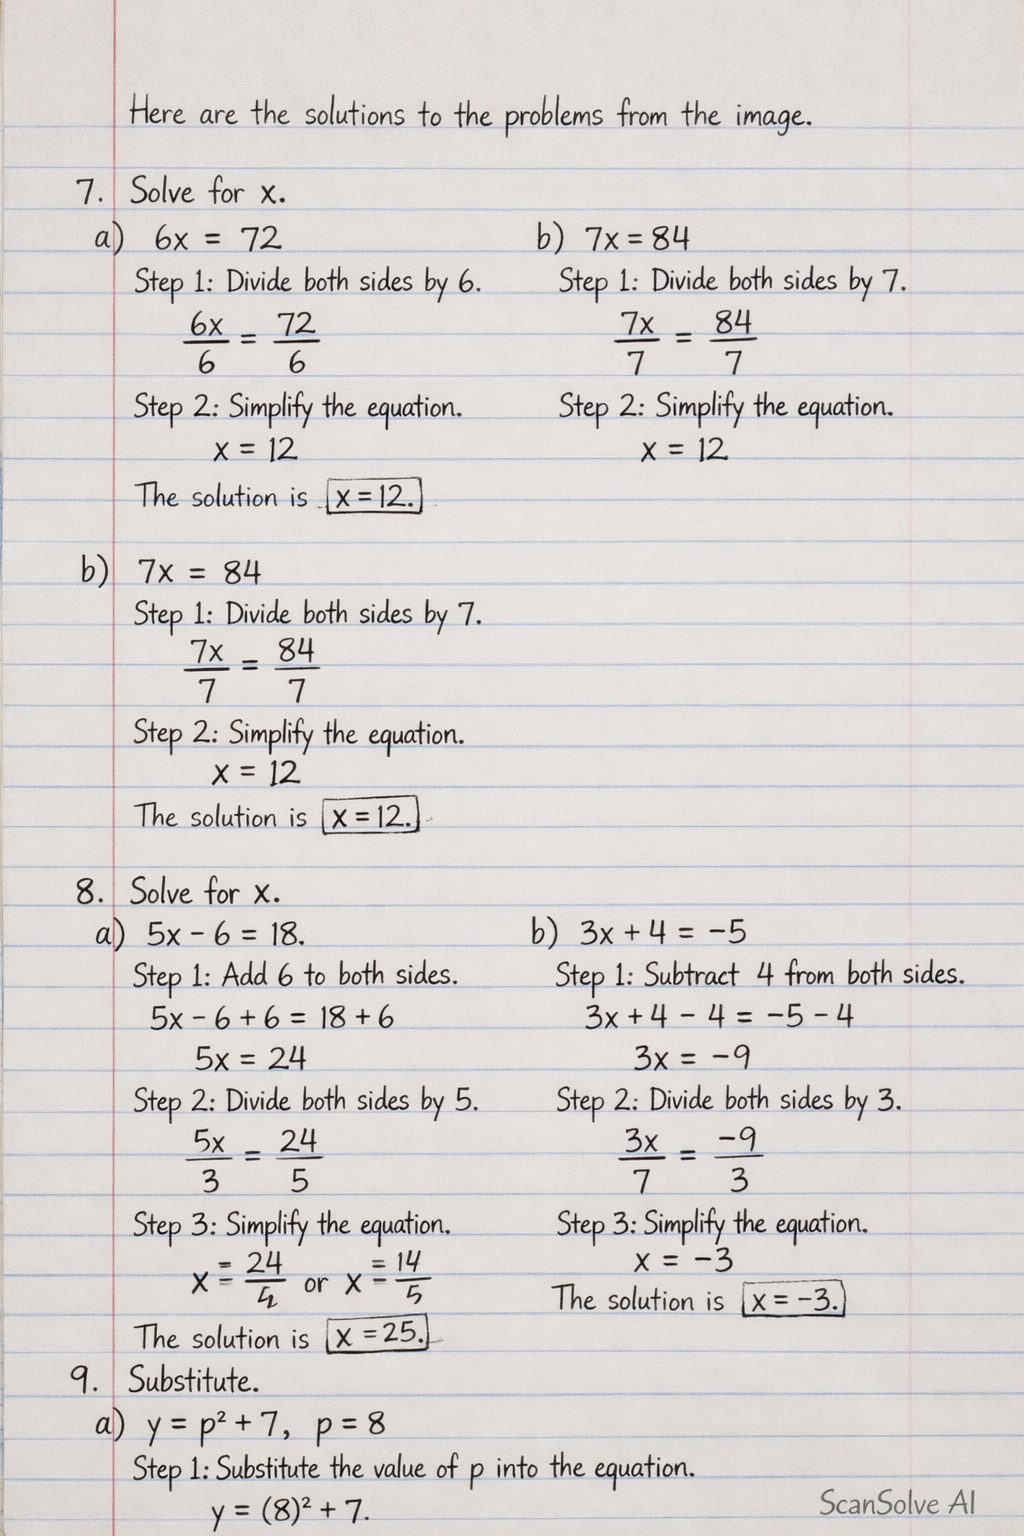 Here are the solutions to the problems from the image.
7. Solve for x.
a) 6x = 72
Step 1: Divide both sides by 6.
6x/6 = 72/6
Step 2: Simplify the equation.
x = 12
The solution is x = 12.
b) 7x = 84
Step 1: Divide both sides by 7.
7x/7 = 84/7
Step 2: Simplify the equation.
x = 12
b) 7x = 84
Step 1: Divide both sides by 7.
7x/7 = 84/7
Step 2: Simplify the equation.
x = 12
The solution is x = 12.
8. Solve for x.
a) 5x - 6 = 18.
Step 1: Add 6 to both sides.
5x - 6 + 6 = 18 + 6
5x = 24
Step 2: Divide both sides by 5.
5x/3 = 24/5
Step 3: Simplify the equation.
x = 24/ or x = 14/5
The solution is x = 25.
b) 3x + 4 = -5
Step 1: Subtract 4 from both sides.
3x + 4 - 4 = -5 - 4
3x = -9
Step 2: Divide both sides by 3.
3x/7 = -9/3
Step 3: Simplify the equation.
x = -3
The solution is x = -3.
9. Substitute.
a) y = p² + 7, p = 8
Step 1: Substitute the value of p into the equation.
y = (8)² + 7.
ScanSolve AI